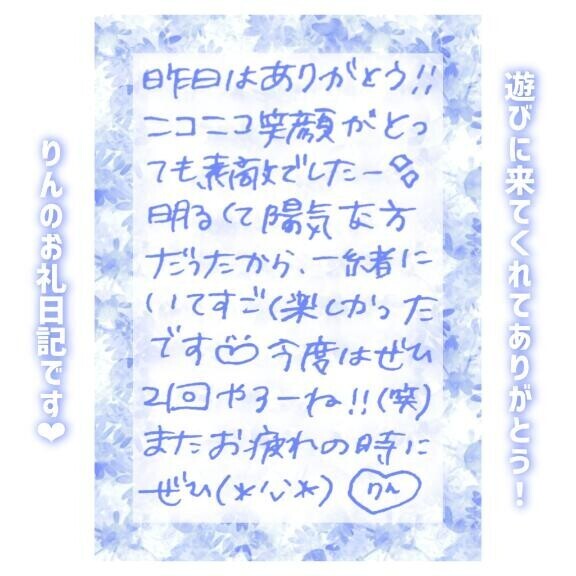 遊びに来てくれてありがとう！
昨日はありがとう!!
ニコニコ笑顔がとっ
ても素敵でしたー
明るくて陽気な方
だったから、一緒に
いてすごく楽しかった
です♡今度はぜひ
2回やろーね!!(笑)
またお疲れの時に
ぜひ(*'∨'*) りん
りんのお礼日記です❤